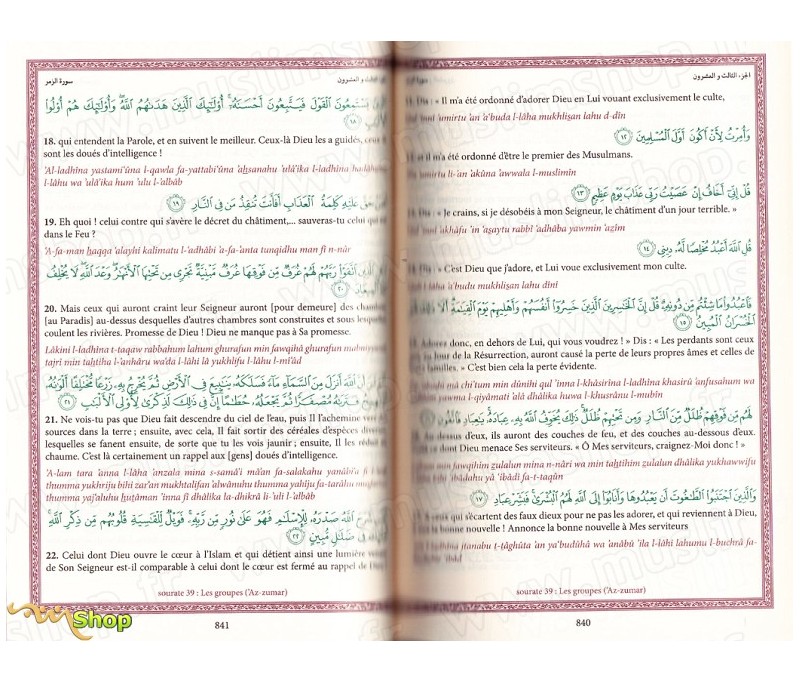 الجزء الثالث و العشرون
« Il m'a été ordonné d'adorer Dieu en Lui vouant exclusivement le culte,
umirtu an a'buda l-lâha mukhliṣan lahu d-dîn
وَأُمِرْتُ لِأَنْ أَكُونَ أَوَّلَ الْمُسْلِمِينَ ١٢
il m'a été ordonné d'être le premier des Musulmans.
umirtu li-'an 'akûna 'awwala l-muslimîn
قُلْ إِنِّي أَخَافُ إِنْ عَصَيْتُ رَبِّي عَذَابَ يَوْمٍ عَظِيمٍ ١٣
« Je crains, si je désobéis à mon Seigneur, le châtiment d'un jour terrible. »
akhâfu 'in 'aṣaytu rabbî 'adhâba yawmin 'aẓîm
قُلِ اللَّهَ أَعْبُدُ مُخْلِصًا لَّهُ دِينِي ١٤
« C'est Dieu que j'adore, et Lui voue exclusivement mon culte.
l-lâha a'budu mukhliṣan lahu dînî
فَاعْبُدُوا مَا شِئْتُم مِّن دُونِهِ قُلْ إِنَّ الْخَاسِرِينَ الَّذِينَ خَسِرُوا أَنفُسَهُمْ وَأَهْلِيهِمْ يَوْمَ الْقِيَامَةِ أَلَا
الْخُسْرَانُ الْمُبِينُ ١٥
Adorez donc, en dehors de Lui, qui vous voudrez ! » Dis : « Les perdants sont ceux
au Jour de la Résurrection, auront causé la perte de leurs propres âmes et celles de
familles. » C'est bien cela la perte évidente.
mâ chi'tum min dûnihi qul 'inna l-khâsirîna l-ladhîna khasirû 'anfusahum wa
yawma l-qiyâmati 'alâ dhâlika huwa l-khusrânu l-mubîn
لَهُم مِّن فَوْقِهِمْ ظُلَلٌ مِّنَ النَّارِ وَمِن تَحْتِهِمْ ظُلَلٌ ذَٰلِكَ يُخَوِّفُ اللَّهُ بِهِ عِبَادَهُ يَا عِبَادِ فَاتَّقُونِ
Au-dessus d'eux, ils auront des couches de feu, et des couches au-dessous d'eux.
dont Dieu menace Ses serviteurs. « Ô Mes serviteurs, craignez-Moi donc ! »
min fawqihim ẓulalun mina n-nâri wa min taḥtihim ẓulalun dhâlika yukhawwifu
bihi 'ibâdahu yâ 'ibâdi fa t-taqûn
وَالَّذِينَ اجْتَنَبُوا الطَّاغُوتَ أَن يَعْبُدُوهَا وَأَنَابُوا إِلَى اللَّهِ لَهُمُ الْبُشْرَىٰ فَبَشِّرْ عِبَادِ ١٧
qui s'écartent des faux dieux pour ne pas les adorer, et qui reviennent à Dieu,
la bonne nouvelle ! Annonce la bonne nouvelle à Mes serviteurs
jtanabu ṭ-ṭâghûta 'an ya'budûhâ wa 'anâbû 'ila l-lâhi lahumu l-buchrâ fa-
'ibâd
sourate 39 : Les groupes ('Az-zumar)
840
سورة الزمر
الثالث و العشرون
يَسْتَمِعُونَ الْقَوْلَ فَيَتَّبِعُونَ أَحْسَنَهُ أُولَٰئِكَ الَّذِينَ هَدَاهُمُ اللَّهُ وَأُولَٰئِكَ هُمْ أُولُوا
١٨
18. qui entendent la Parole, et en suivent le meilleur. Ceux-là Dieu les a guidés, ceux-
sont les doués d'intelligence !
'Al-ladhîna yastami'ûna l-qawla fa-yattabi'ûna 'aḥsanahu 'ulâ'ika l-ladhîna hadâhumu
l-lâhu wa 'ulâ'ika hum 'ulu l-albâb
حَقَّ عَلَيْهِ كَلِمَةُ الْعَذَابِ أَفَأَنتَ تُنقِذُ مَن فِي النَّارِ ١٩
19. Eh quoi ! celui contre qui s'avère le décret du châtiment,... sauveras-tu celui qui
dans le Feu ?
'A-fa-man ḥaqqa 'alayhi kalimatu l-'adhâbi 'a-fa-'anta tunqidhu man fî n-nâr
اتَّقَوْا رَبَّهُمْ لَهُمْ غُرَفٌ مِّن فَوْقِهَا غُرَفٌ مَّبْنِيَّةٌ تَجْرِي مِن تَحْتِهَا الْأَنْهَارُ وَعْدَ اللَّهِ لَا يُخْلِفُ
٢٠
20. Mais ceux qui auront craint leur Seigneur auront [pour demeure] des chambres
[au Paradis] au-dessus desquelles d'autres chambres sont construites et sous lesquelles
coulent les rivières. Promesse de Dieu ! Dieu ne manque pas à Sa promesse.
Lâkini l-ladhîna t-taqaw rabbahum lahum ghurafun min fawqihâ ghurafun mabniyyatun
tajrî min taḥtiha l-'anhâru wa'da l-lâhi lâ yukhlifu l-lâhu l-mi'âd
اللَّهَ أَنزَلَ مِنَ السَّمَاءِ مَاءً فَسَلَكَهُ يَنَابِيعَ فِي الْأَرْضِ ثُمَّ يُخْرِجُ بِهِ زَرْعًا مُّخْتَلِفًا أَلْوَانُهُ
فَتَرَاهُ مُصْفَرًّا ثُمَّ يَجْعَلُهُ حُطَامًا إِنَّ فِي ذَٰلِكَ لَذِكْرَىٰ لِأُولِي الْأَلْبَابِ ٢١
21. Ne vois-tu pas que Dieu fait descendre du ciel de l'eau, puis Il l'achemine vers
sources dans la terre ; ensuite, avec cela, Il fait sortir des céréales d'espèces diverses
lesquelles se fanent ensuite, de sorte que tu les vois jaunir ; ensuite, Il les réduit
chaume. C'est là certainement un rappel aux [gens] doués d'intelligence.
'A-lam tara 'anna l-lâha 'anzala mina s-samâ'i mâ'an fa-salakahu yanâbî'a fi l-
thumma yukhriju bihi zar'an mukhtalifan 'alwânuhu thumma yahîju fa-tarâhu
thumma yaj'aluhu ḥuṭâman 'inna fî dhâlika la-dhikrâ li-'uli l-'albâb
شَرَحَ اللَّهُ صَدْرَهُ لِلْإِسْلَامِ فَهُوَ عَلَىٰ نُورٍ مِّن رَّبِّهِ فَوَيْلٌ لِّلْقَاسِيَةِ قُلُوبُهُم مِّن ذِكْرِ اللَّهِ
فِي ضَلَالٍ مُّبِينٍ ٢٢
22. Celui dont Dieu ouvre le cœur à l'Islam et qui détient ainsi une lumière
de Son Seigneur est-il comparable à celui dont le cœur est fermé au rappel de
sourate 39 : Les groupes ('Az-zumar)
841
Shop